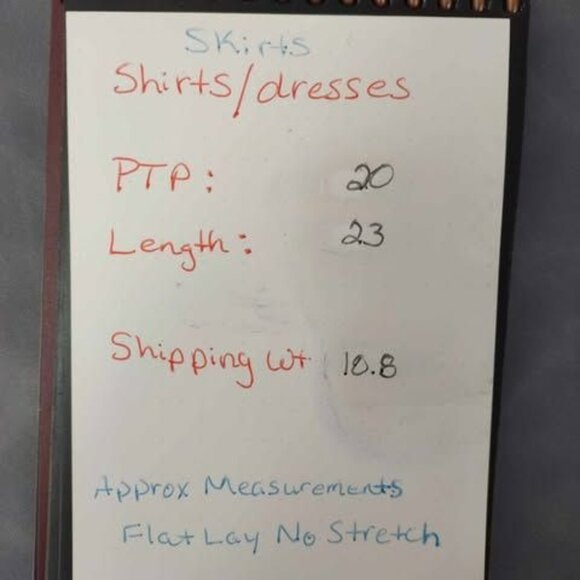 Skirts
Shirts/dresses
PTP: 20
Length: 23
Shipping Wt 10.8
Approx Measurements
Flat Lay No Stretch